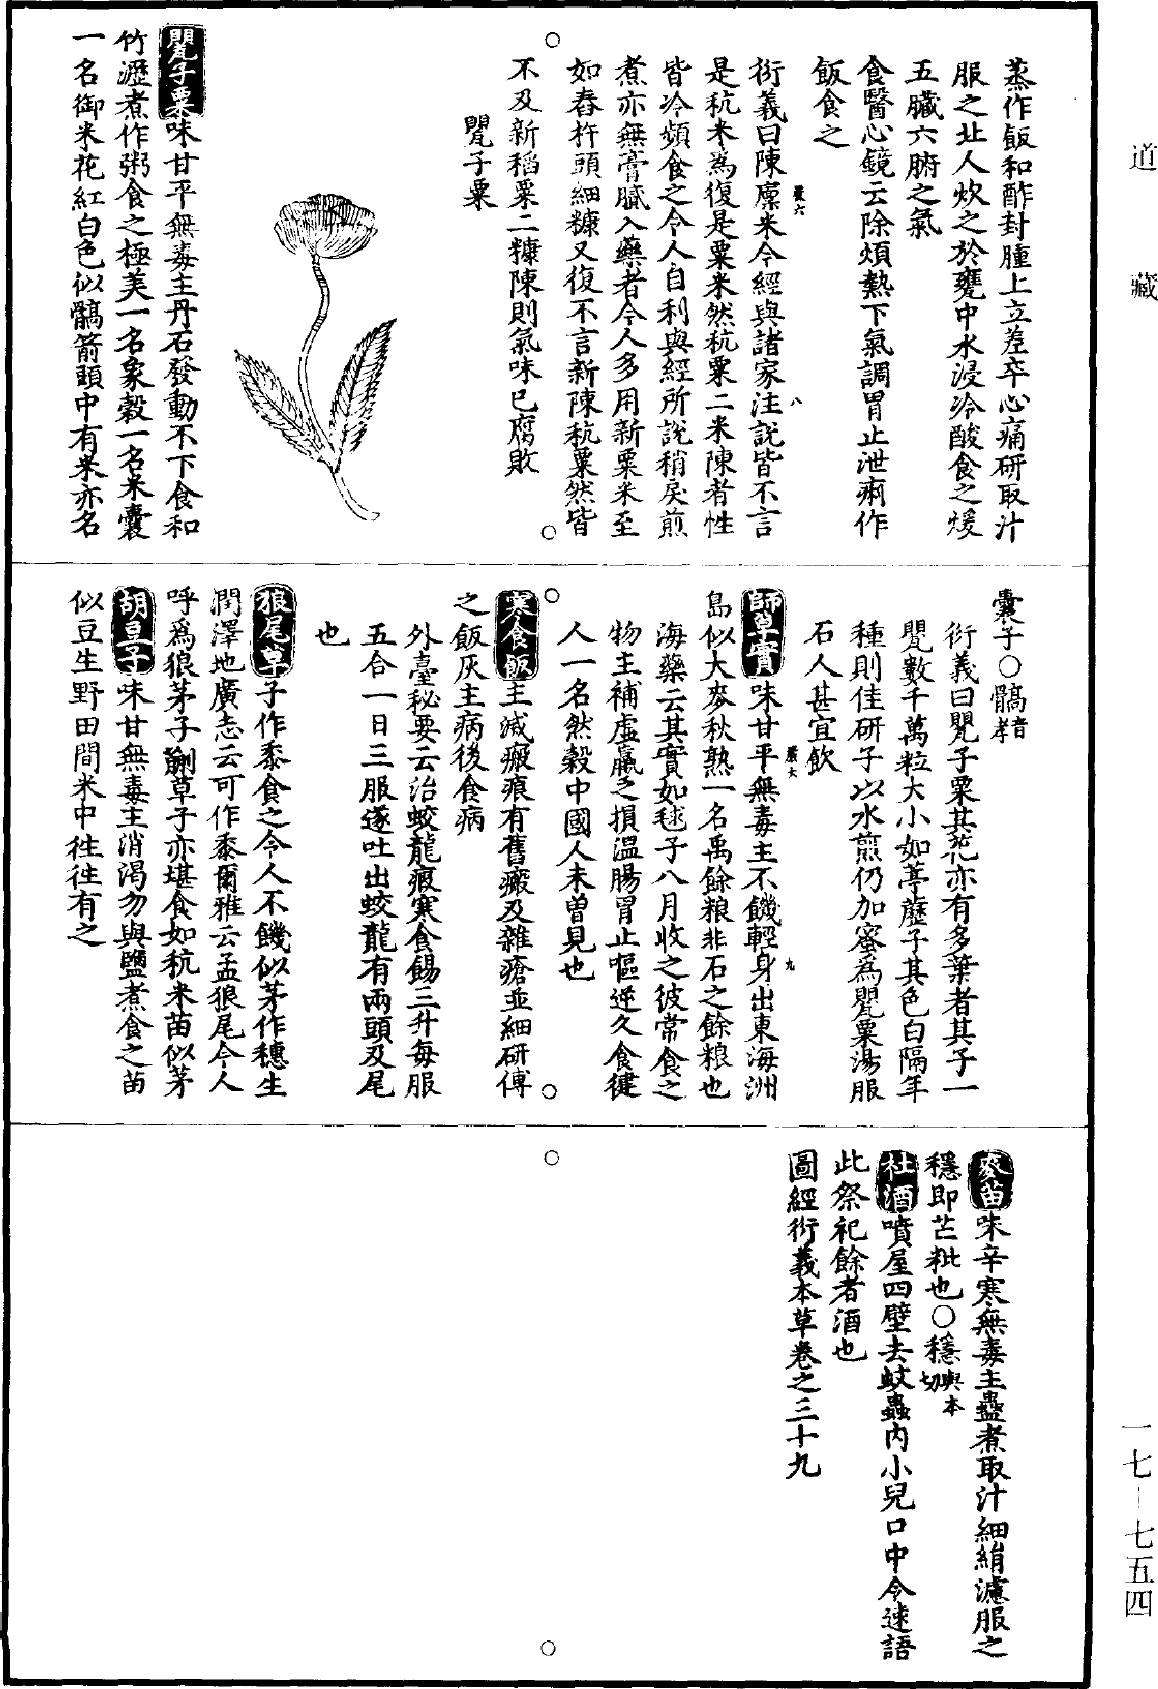 道藏
蒸作飯和酢封腫上立差卒心痛研取汁
服之北人炊之於甕中水浸令酸食之煖
五臟六腑之氣
食醫心鏡云除煩熱下氣調胃止泄痢作
飯食之
衍義曰陳廩米今經與諸家注說皆不言
是秔米為復是粟米然秔粟二米陳者性
皆冷頻食之令人自利與經所說稍戾煎
煮亦無膏膩入藥者今人多用新粟米至
如舂杵頭細糠又復不言新陳秔粟然皆
不及新稻粟二糠陳則氣味已腐敗
甖子粟
甖子粟味甘平無毒主丹石發動不下食和
竹瀝煮作粥食之極美一名象穀一名米囊
一名御米花紅白色似髇箭頭中有米亦名
囊子○髇音孝
衍義曰甖子粟其花亦有多葉者其子一
甖數千萬粒大小如葶藶子其色白隔年
種則佳研子以水煎仍加蜜為甖粟湯服
石人甚宜飲
師草實味甘平無毒主不饑輕身出東海洲
島似大麥秋熟一名禹餘粮非石之餘粮也
海藥云其實如毬子八月收之彼常食之
物主補虛羸乏損溫腸胃止嘔逆久食健
人一名然穀中國人未曾見也
寒食飯主滅瘢痕有舊瘢及雜瘡並細研傅
之飯灰主病後食病
外臺秘要云治蛟龍瘕寒食餳三升每服
五合一日三服遂吐出蛟龍有兩頭及尾
也
狼尾草子作黍食之令人不饑似茅作穗生
澗澤地廣志云可作黍爾雅云孟狼尾今人
呼為狼茅子蒯草子亦堪食如秔米苗似茅
胡豆子味甘無毒主消渴勿與鹽煮食之苗
似豆生野田間米中往往有之
麥苗味辛寒無毒主蠱煮取汁細絹濾服之
穩即芒粃也○穩與本切
社酒噴屋四壁去蚊蟲內小兒口中令速語
此祭祀餘者酒也
圖經衍義本草卷之三十九
一七—七五四